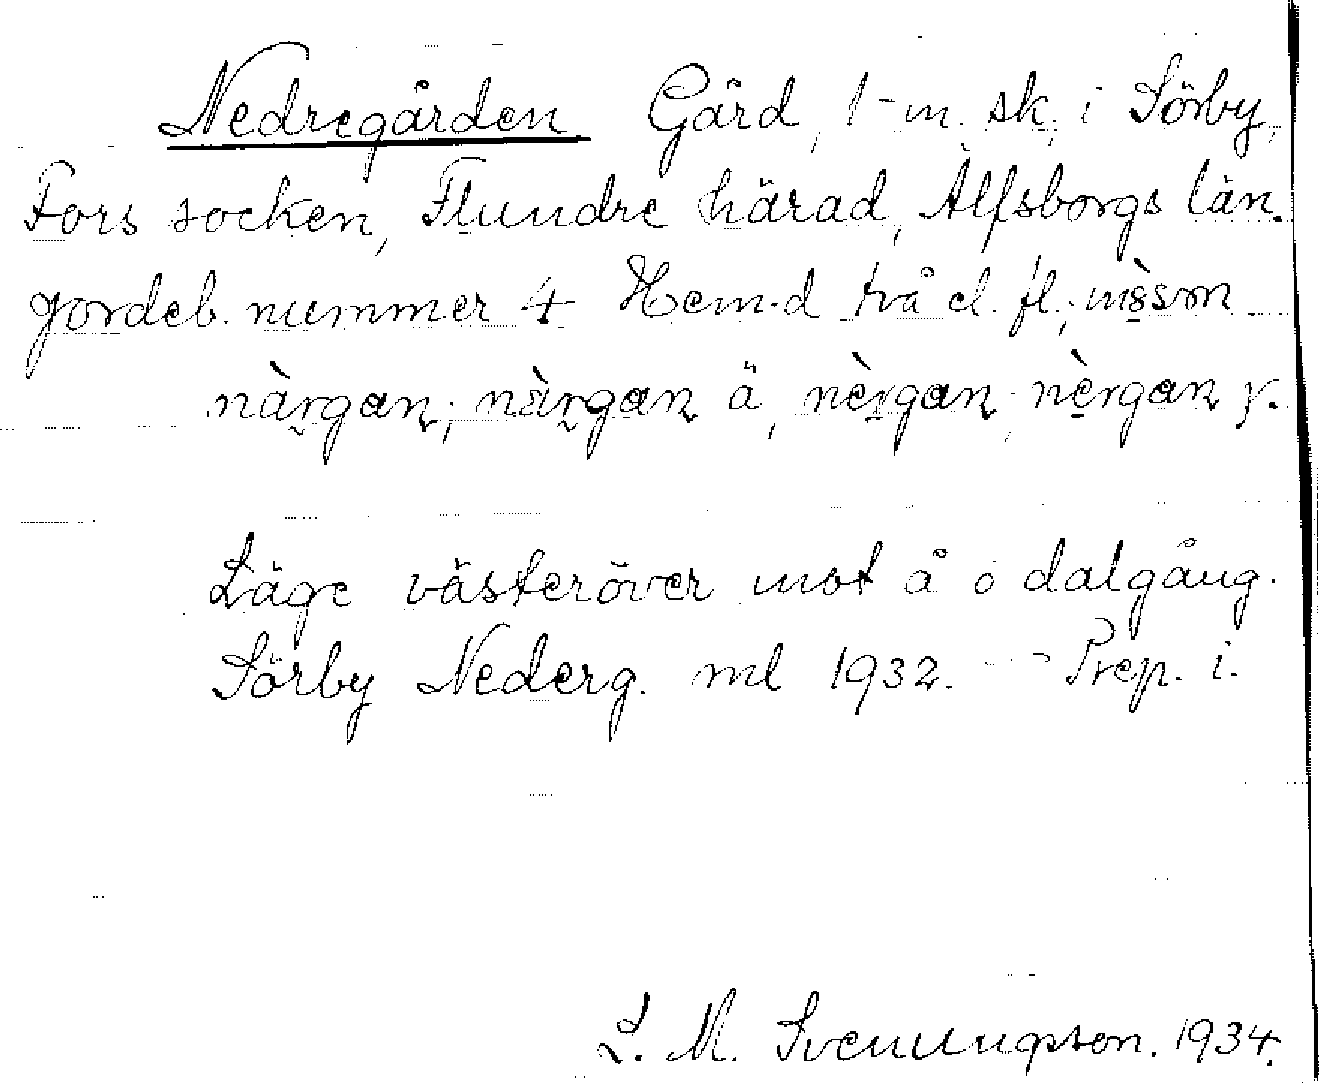 Nedregården Gård, 1-m. sk, i Sörby,
Fors socken, Flundre härad, Älfsborgs län.
jordeb. nummer 4 Hem-d två el. fl.;
nàrgan; nàrgan ä, nèrgan; nèrgan y.
Läge västeröver mot å o dalgång.
Sörby Nederg. ml 1932. - - Prep. i.
L. M. Svenungsson. 1934.